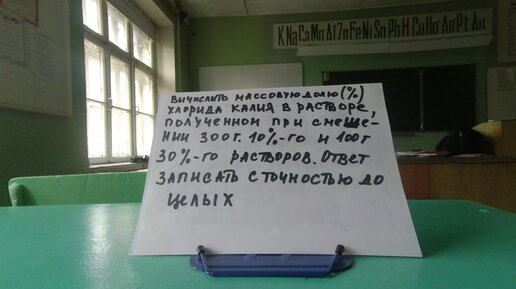 K Na Ca Mg Al Zn Fe Ni Sn Pb H Cu Hg Ag Pt Au
ВЫЧИСЛИТЬ МАССОВУЮ ДОЛЮ (%)
ХЛОРИДА КАЛИЯ В РАСТВОРЕ,
ПОЛУЧЕННОМ ПРИ СМЕШЕ-
НИИ 300 г. 10%-ГО И 100 г
30%-ГО РАСТВОРОВ. ОТВЕТ
ЗАПИСАТЬ С ТОЧНОСТЬЮ ДО
ЦЕЛЫХ